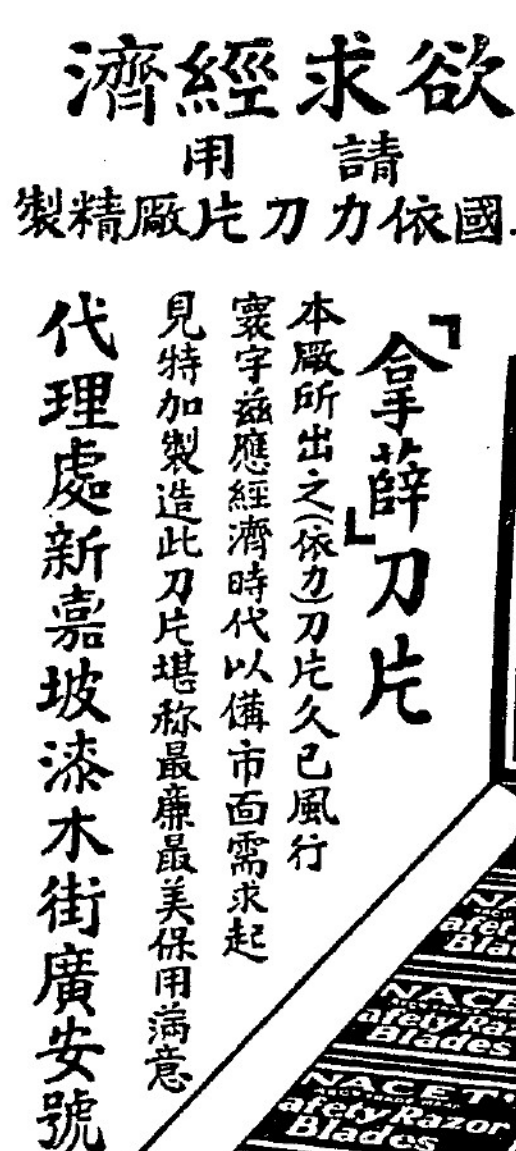 欲求經濟
請用
國依力刀片厰精製
「拿薛」刀片
本厰所出之(依力)刀片久已風行
寰宇茲應經濟時代以備市面需求起
見特加製造此刀片堪称最廉最美保用滿意
代理處新嘉坡漆木街廣安號
NACET
Safety Razor
Blades
NACET
Safety Razor
Blades
NACET
Safety Razor
Blades